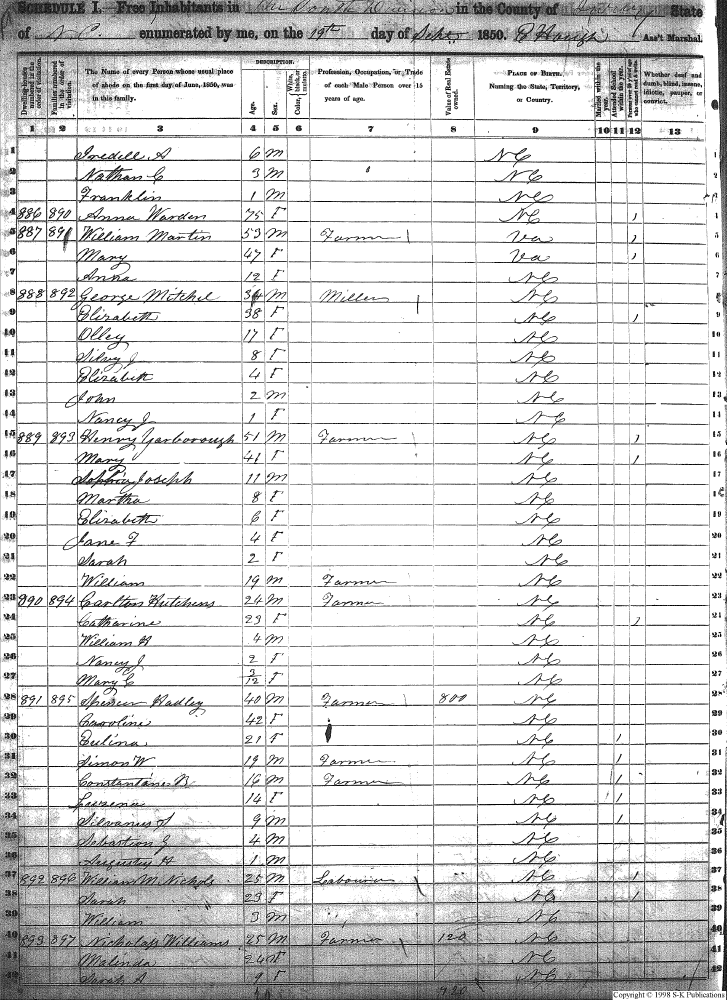 SCHEDULE I.—Free Inhabitants in the South Division in the County of State
of N.C. enumerated by me, on the 19th day of Sept 1850. Ass't Marshal.
DESCRIPTION.
Dwelling-houses numbered in the order of visitation.
Families numbered in the order of visitation.
The Name of every Person whose usual place of abode on the first day of June, 1850, was in this family.
Age.
Sex.
Color, White, black, or mulatto.
Profession, Occupation, or Trade of each Male Person over 15 years of age.
Value of Real Estate owned.
PLACE OF BIRTH. Naming the State, Territory, or Country.
Married within the year.
Attended School within the year.
Persons over 20 y'rs of age who cannot read & write.
Whether deaf and dumb, blind, insane, idiotic, pauper, or convict.
1 2 3 4 5 6 7 8 9 10 11 12 13
1 Iredell A 6 M NC 1
2 Nathan C 3 M NC 2
3 Franklin 1 M NC 3
4 886 890 Anna Warden 75 F NC / 4
5 887 891 William Martin 53 M Farmer Va / 5
6 Mary 47 F Va / 6
7 Anna 12 F NC 7
8 888 892 George Mitchel 34 M Miller NC 8
9 Elizabeth 38 F NC / 9
10 Olley 17 F NC 10
11 Silvy J 8 F NC 11
12 Elizabeth 4 F NC 12
13 John 2 M NC 13
14 Nancy J 1 F NC 14
15 889 893 Henry Yarborough 51 M Farmer NC / 15
16 Mary 41 F NC / 16
17 Joseph 11 M NC 17
18 Martha 8 F NC 18
19 Elizabeth 6 F NC 19
20 Jane F 4 F NC 20
21 Sarah 2 F NC 21
22 William 19 M Farmer NC 22
23 890 894 Carlton Hutchens 24 M Farmer NC 23
24 Catharine 23 F NC / 24
25 William H 4 M NC 25
26 Nancy J 2 F NC 26
27 Mary C 3/12 F NC 27
28 891 895 Spencer Hadley 40 M Farmer 800 NC 28
29 Caroline 42 F NC 29
30 Eulina 21 F NC / 30
31 Simon W 19 M Farmer NC / 31
32 Constantine B 16 M Farmer NC / 32
33 Luzena 14 F NC / 33
34 Silvanus S 9 M NC / 34
35 Sebastian J 4 M NC 35
36 Augustus H 1 M NC 36
37 892 896 William M Nichols 25 M Labourer NC / 37
38 Sarah 23 F NC / 38
39 William 3 M NC 39
40 893 897 Nicholas Williams 25 M Farmer 120 NC 40
41 Malinda 24 F NC 41
42 Sarah A 9 F NC 42
920
Copyright © 1998 S-K Publications